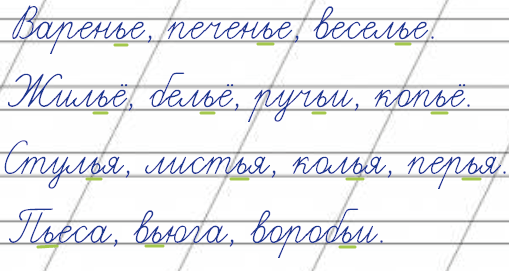 Варенье, печенье, веселье.
Жильё, бельё, ручьи, копьё.
Стулья, листья, колья, перья.
Пьеса, вьюга, воробьи.